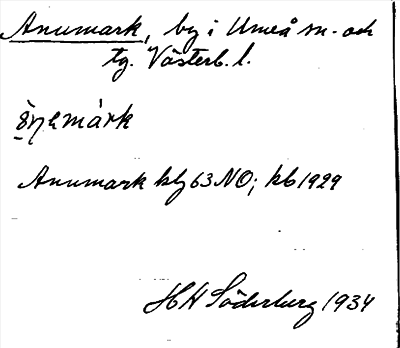 Anumark, by i Umeå sn. och
tg. Västerb. l.
Anumark kbl 63 NO; kb 1929
HH Söderberg 1934